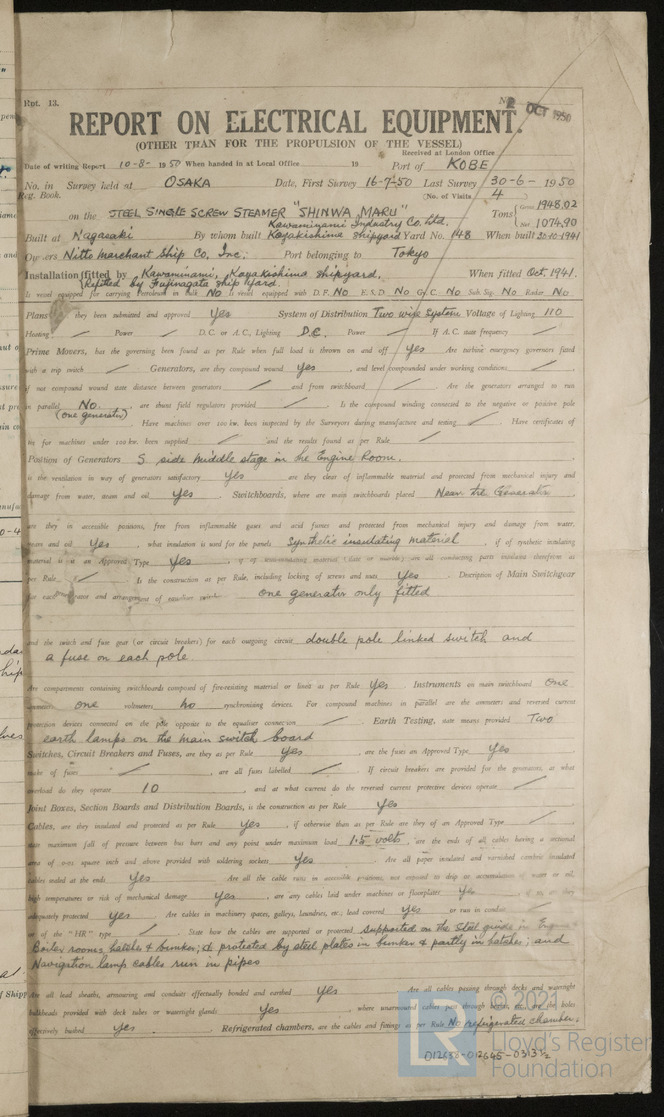 Rpt. 13.
No. 2 OCT 1950
REPORT ON ELECTRICAL EQUIPMENT.
(OTHER TRAN FOR THE PROPULSION OF THE VESSEL)
Received at London Office
Date of writing Report 10-8- 19 50 When handed in at Local Office 19 Port of KOBE
No. in Survey held at OSAKA Date, First Survey 16-7-50 Last Survey 30-6- 19 50
Reg. Book. (No. of Visits 4 )
on the STEEL SINGLE SCREW STEAMER "SHINWA MARU" Tons Gross 1948.02 Net 1074.90
Built at Nagasaki By whom built Kawaminami Industry Co, Ltd. Koyakishima Shipyard Yard No. 148 When built 20.10.1941
Owners Nitto Merchant Ship Co, Inc. Port belonging to Tokyo
Installation fitted by Kawaminami, Koyakishima shipyard. When fitted Oct. 1941.
Refitted by Fujinagata ship yard.
Is vessel equipped for carrying Petroleum in bulk No Is vessel equipped with D.F. No E.S.D. No Gy.C. No Sub.Sig. No Radar No
Plans they been submitted and approved Yes System of Distribution Two wire System Voltage of Lighting 110
Heating Power D.C. or A.C., Lighting D.C. Power If A.C. state frequency
Prime Movers, has the governing been found as per Rule when full load is thrown on and off Yes Are turbine emergency governors fitted
with a trip switch Generators, are they compound wound Yes, and level compounded under working conditions
if not compound wound state distance between generators and from switchboard Are the generators arranged to run
in parallel No. are shunt field regulators provided Is the compound winding connected to the negative or positive pole
(one generator) Have machines over 100 kw. been inspected by the Surveyors during manufacture and testing Have certificates of
tes for machines under 100 kw. been supplied and the results found as per Rule
Position of Generators S side middle stage in the Engine Room.
is the ventilation in way of generators satisfactory Yes are they clear of inflammable material and protected from mechanical injury and
damage from water, steam and oil Yes Switchboards, where are main switchboards placed Near the Generator
are they in accessible positions, free from inflammable gases and acid fumes and protected from mechanical injury and damage from water,
steam and oil Yes, what insulation is used for the panels Synthetic insulating material, if of synthetic insulating
material is it an Approved Type Yes, if of semi-insulating material (slate or marble) are all conducting parts insulated therefrom as
per Rule Is the construction as per Rule, including locking of screws and nuts Yes. Description of Main Switchgear
for each generator and arrangement of equaliser switches one generator only fitted
and the switch and fuse gear (or circuit breakers) for each outgoing circuit double pole linked switch and
a fuse on each pole.
Are compartments containing switchboards composed of fire-resisting material or lined as per Rule Yes Instruments on main switchboard One
ammeters one voltmeters no synchronising devices. For compound machines in parallel are the ammeters and reversed current
protection devices connected on the pole opposite to the equaliser connection Earth Testing, state means provided Two
earth lamps on the main switch board
Switches, Circuit Breakers and Fuses, are they as per Rule Yes, are the fuses an Approved Type Yes
make of fuses, are all fuses labelled If circuit breakers are provided for the generators, at what
overload do they operate 10, and at what current do the reversed current protective devices operate
Joint Boxes, Section Boards and Distribution Boards, is the construction as per Rule Yes
Cables, are they insulated and protected as per Rule Yes, if otherwise than as per Rule are they of an Approved Type
state maximum fall of pressure between bus bars and any point under maximum load 1.5 volts, are the ends of all cables having a sectional
area of 0.01 square inch and above provided with soldering sockets Yes. Are all paper insulated and varnished cambric insulated
cables sealed at the ends Yes Are all the cable runs in accessible positions, not exposed to drip or accumulation of water or oil,
high temperatures or risk of mechanical damage Yes, are any cables laid under machines or floorplates Yes, if so, are they
adequately protected Yes. Are cables in machinery spaces, galleys, laundries, etc., lead covered Yes or run in conduit
or of the "HR" type State how the cables are supported or protected supported on the steel grids in Engine
Boiler rooms, hatches & bunker; & protected by steel plates in bunker & partly in hatches; and
Navigation lamp cables run in pipes
Are all lead sheaths, armouring and conduits effectually bonded and earthed Yes Are all cables passing through decks and watertight
bulkheads provided with deck tubes or watertight glands Yes, where unarmoured cables pass through beams, etc., are the holes
effectively bushed Yes. Refrigerated chambers, are the cables and fittings as per Rule No refrigerated chamber.
© 2021
LR Lloyd's Register
Foundation
012638-012645-0313½